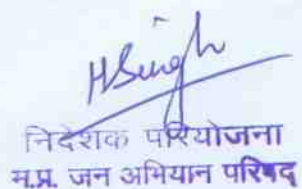 HSingh
निदेशक परियोजना
म.प्र. जन अभियान परिषद